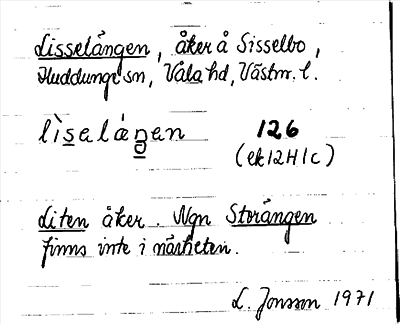 Lisselången, åker å Sisselbo,
Huddunge sn, Vala hd, Västm. l.
lìselánen 126
(ek 12H1c)
Liten åker. Ngn Storången
finns inte i närheten.
L. Jonsson 1971